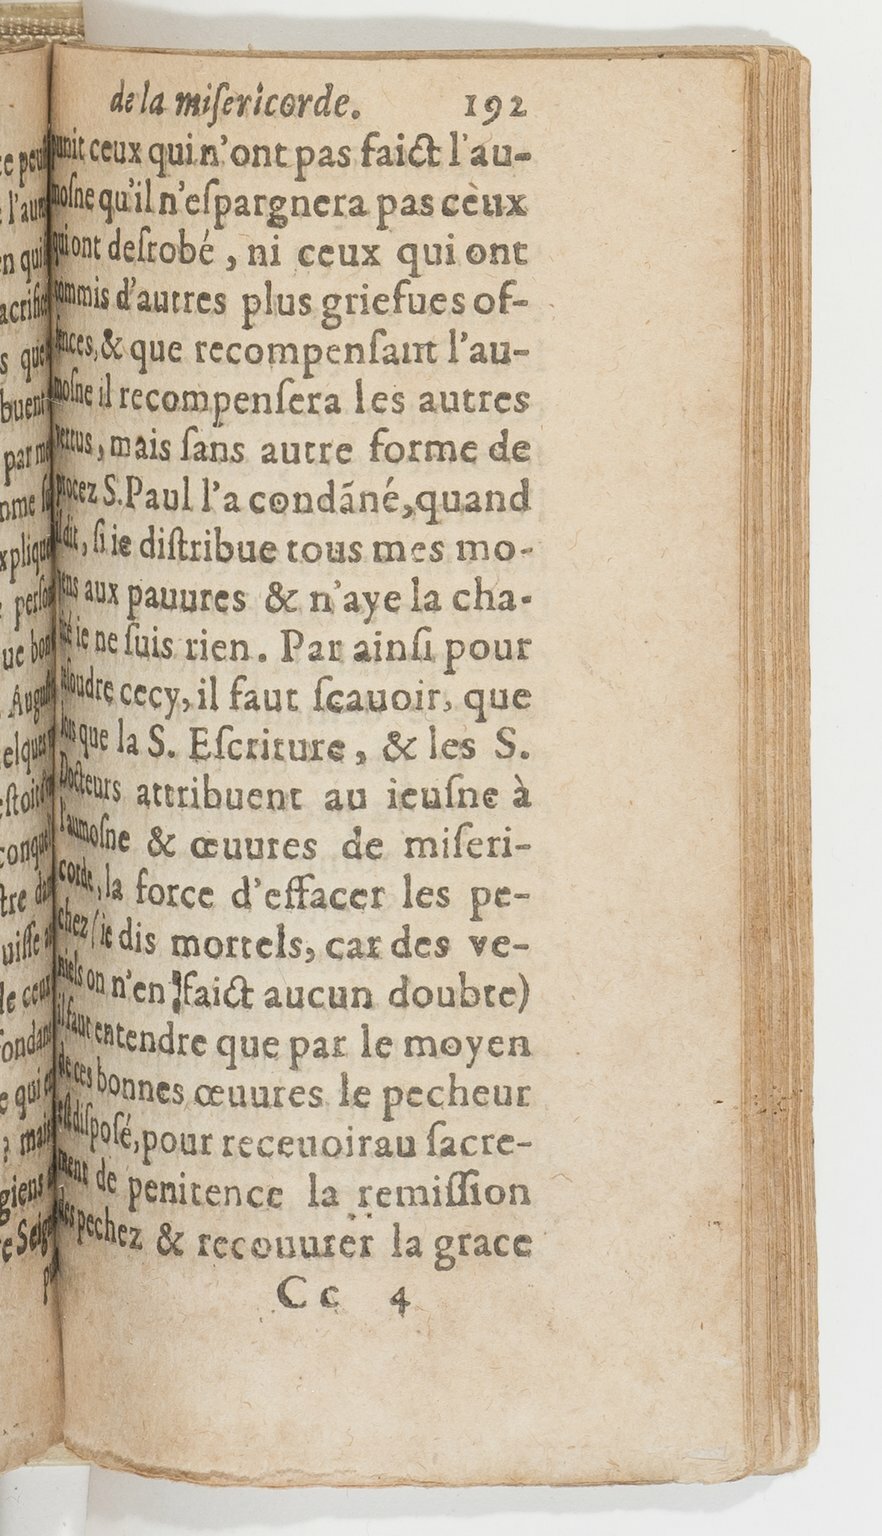 de la miſericorde. 192
punit ceux qui n'ont pas faict l'au-
moſne qu'il n'eſpargnera pas ceux
qui ont deſrobé, ni ceux qui ont
commis d'autres plus griefues of-
fences, & que recompenſant l'au-
moſne il recompenſera les autres
vertus, mais ſans autre forme de
procez S. Paul l'a condãné, quand
il dit, ſi ie diſtribue tous mes mo-
yens aux pauures & n'aye la cha-
rité ie ne ſuis rien. Par ainſi pour
reſoudre cecy, il faut ſcauoir, que
lors que la S. Eſcriture, & les S.
Docteurs attribuent au ieuſne à
l'aumoſne & œuures de miſeri-
corde, la force d'effacer les pe-
chez (ie dis mortels, car des ve-
niels on n'en faict aucun doubte)
il faut entendre que par le moyen
de ces bonnes œuures le pecheur
eſt diſpoſé, pour receuoir au ſacre-
ment de penitence la remiſſion
des pechez & recouurer la grace
Cc 4